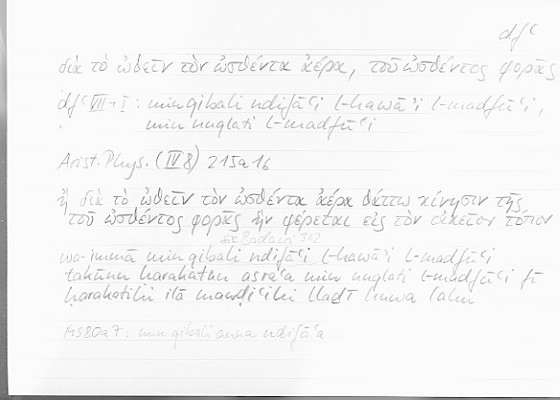 dfʿ
διὰ τὸ ὠθεῖν τὸν ὠσθέντα ἀέρα, τοῦ ὠσθέντος φορᾶς
dfʿ VII + I : min qibali ndifāʿi l-hawāʾi l-madfūʿi,
min nuqlati l-madfūʿi
Arist. Phys. (IV 8) 215a16
ἢ διὰ τὸ ὠθεῖν τὸν ὠσθέντα ἀέρα θάττω κίνησιν τῆς
τοῦ ὠσθέντος φορᾶς ἣν φέρεται εἰς τὸν οἰκεῖον τόπον
sic Badawī 362
wa-immā min qibali ndifāʿi l-hawāʾi l-madfūʿi
takūnu ḥarakatun asraʿa min nuqlati l-madfūʿi fī
ḥarakatihī ilā mawḍiʿihi lladī huwa lahu
MS 80a7 : min qibali anna ndifāʿa